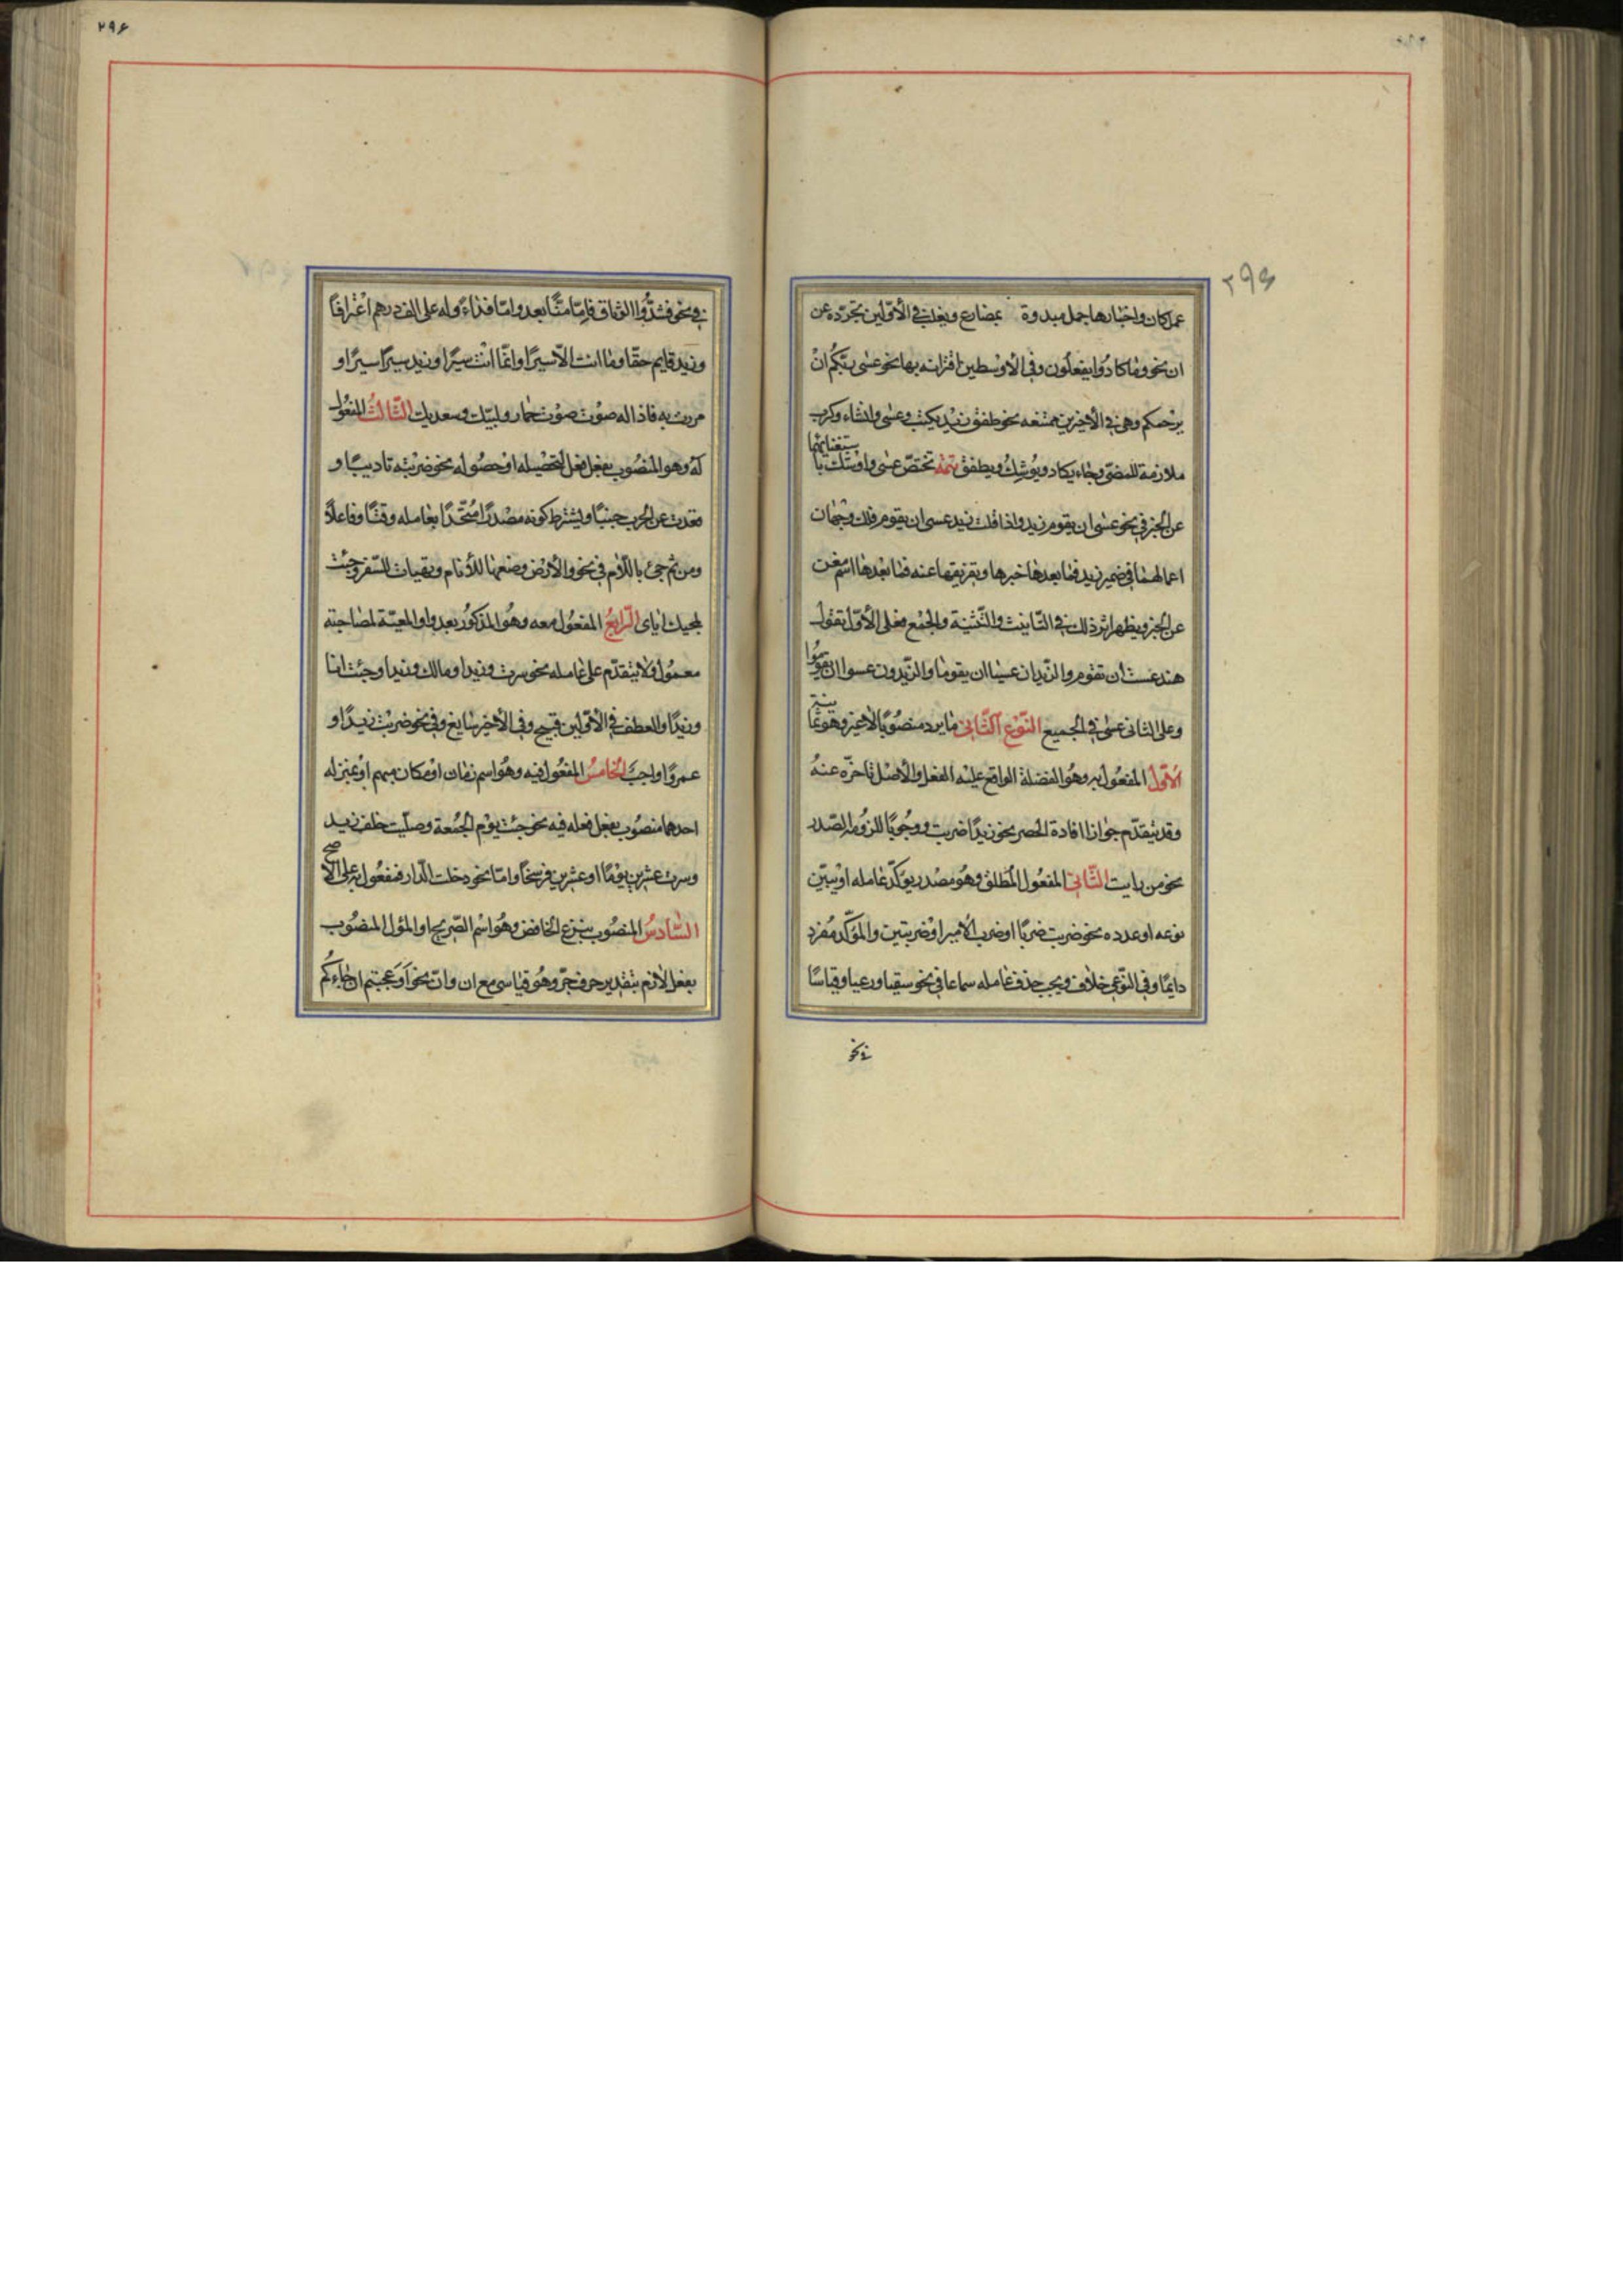 ۲۹۶
۲۹۶
عمل كان واخبارها جمل مبدوة بمضارع ويغلب فى الأوّلين تجرّده عن
ان نحو وما كادوا يفعلون وفى الأوسطين اقترانه بها نحو عسى ربّكم ان
يرحمكم وهى فى الأخيرين ممتنعه نحو طفق زيد يكتب وعسى وانشاء وكرب
ملازمة للمضىّ وجاء يكاد ويوشك ويطفق تتمّه تختصّ عسى واوشك با
ستغنائهما
عن الخبر فى نحو عسى ان يقوم زيد واذا قلت زيد عسى ان يقوم فلك وجهان
اعمالهما فى ضمير زيد فما بعدها خبرها وتفريقها عنه فما بعدها اسم مغن
عن الخبر ويظهر اثر ذلك فى التّانيث والتّثنية والجمع فعلى الأوّل تقول
هند عست ان تقوم والزّيدان عسيا ان يقوما والزّيدون عسوا ان يقوموا
وعلى الثانى عسى فى الجميع النّوع الثّانى ما يرد منصوبًا لاغير وهو ثما
نية
الأوّل المفعول به وهو الفضلة الواقع عليه الفعل والأصل تاخّره عنه
وقد يتقدّم جوازا لافادة الحصر نحو زيدًا ضربت ووجوبًا للزومه الصّدر
نحو من رايت الثّانى المفعول المطلق وهو مصدر يؤكّد عامله او يبيّن
نوعه او عدده نحو ضربت ضربًا او ضرب الأمير او ضربتين والمؤكّد مفرد
دايمًا وفى النّوعى خلاف ويجب حذف عامله سماعا فى نحو سقيا ورعيا وقياسًا
فى نحو
فى نحو فشدّوا الوثاق فامّا منًّا بعد وامّا فداءً وله على الف درهم اعترافًا
وزيد قايم حقّا وما انت الّا سيرًا وانّما انت سيرًا وزيد سيرًا سيرًا و
مررت به فاذا له صوت صوت حمار ولبّيك وسعديك الثّالث المفعول
له وهو المنصوب بفعل فعل لتحصيله او حصوله نحو ضربته تاديبًا و
قعدت عن الحرب جبنًا ويشترط كونه مصدرًا متّحدًا بعامله وقتًا وفاعلًا
ومن ثم جىء باللّام فى نحو والأرض وضعها للأنام وتهيات للسّفر وجئت
لمجيك ايّاى الرّابع المفعول معه وهو المذكور بعد واو المعيّة لمصاحبة
معمول ولا يتقدّم على عامله نحو سرت وزيدا ومالك وزيدا وجئت انا
وزيدًا والعطف فى الأوّلين قبيح وفى الأخير سايغ وفى نحو ضربت زيدًا و
عمروًا واجب الخامس المفعول فيه وهو اسم زمان او مكان مبهم او بمنزله
احدهما منصوب بفعل فعله فيه نحو جئت يوم الجمعة وصلّيت خلف زيد
وسرت عشرين يومًا او عشرين فرسخًا وامّا نحو دخلت الدّار فمفعول به على الأصحّ
السّادس المنصوب بنزع الخافض وهو اسم الصّريح او المؤل المنصوب
بفعل لازم بتقدير حرف جرّ وهو قياسى مع ان وانّ نحو اَوَعجبتم ان جاءكم